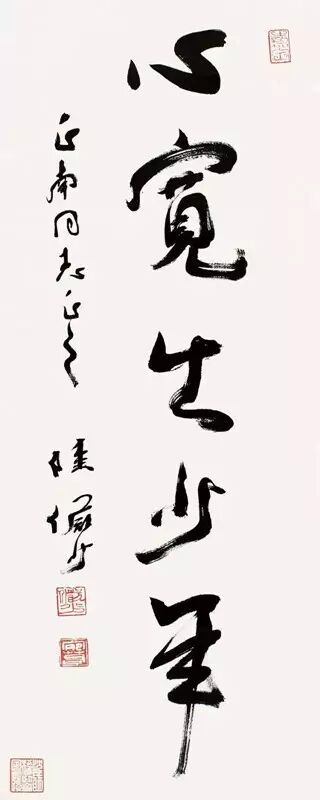 心寬生少年
正南同志正之
陸儼少